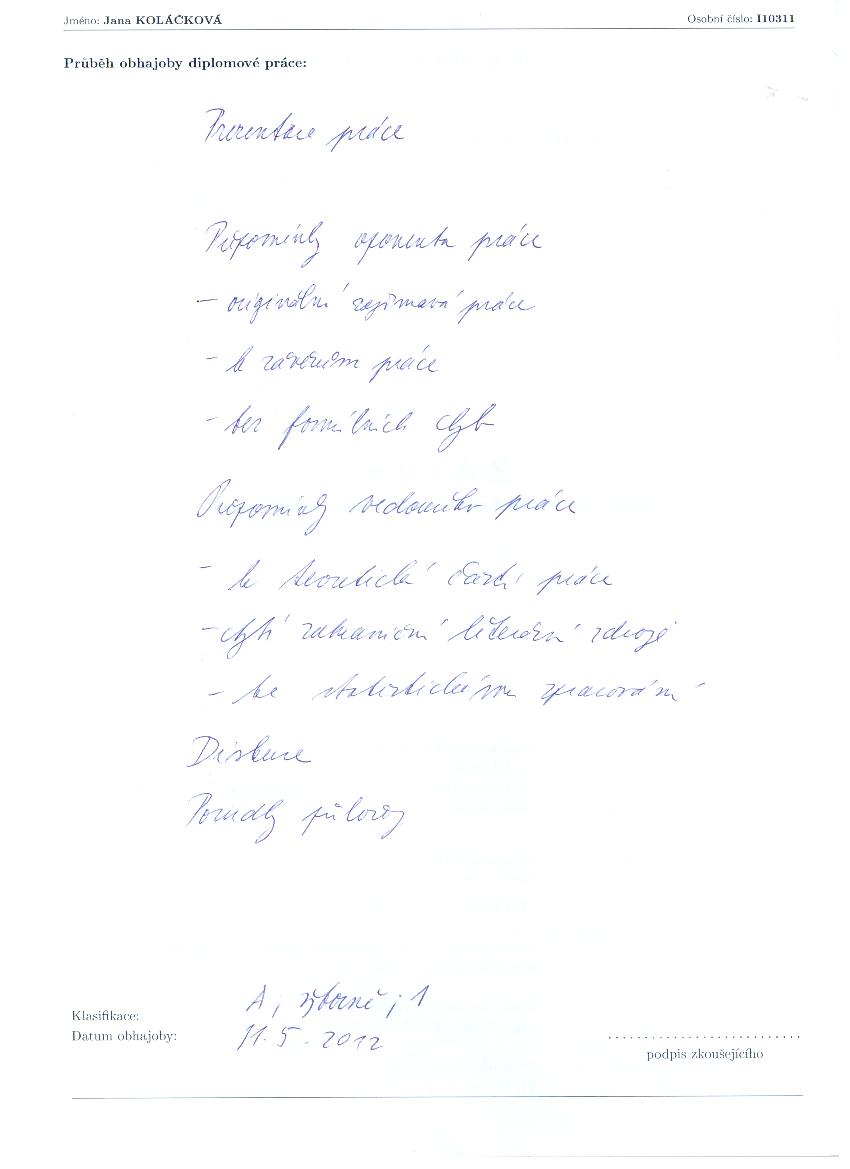 Jméno: Jana KOLÁČKOVÁ Osobní číslo: I10311
Průběh obhajoby diplomové práce:
Prezentace práce
Připomínky oponenta práce
- originální zajímavá práce
- k závěrům práce
- bez formálních chyb
Připomínky vedoucího práce
- k teoretické části práce
- chybí zahraniční literární zdroje
- ke statistickému zpracování
Diskuse
Posudky přílohy
Klasifikace: A; výborně; 1
Datum obhajoby: 11.5.2012
podpis zkoušejícího